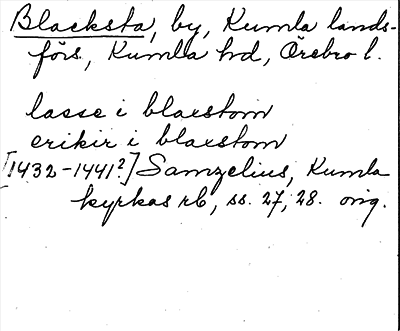 Blacksta, by, Kumla lands-
förs., Kumla hd, Örebro l.
lasse i blaxstom
erikir i blaxstom
[1432-1441?] Samzelius, Kumla
kyrkas rb, ss. 27, 28. orig.